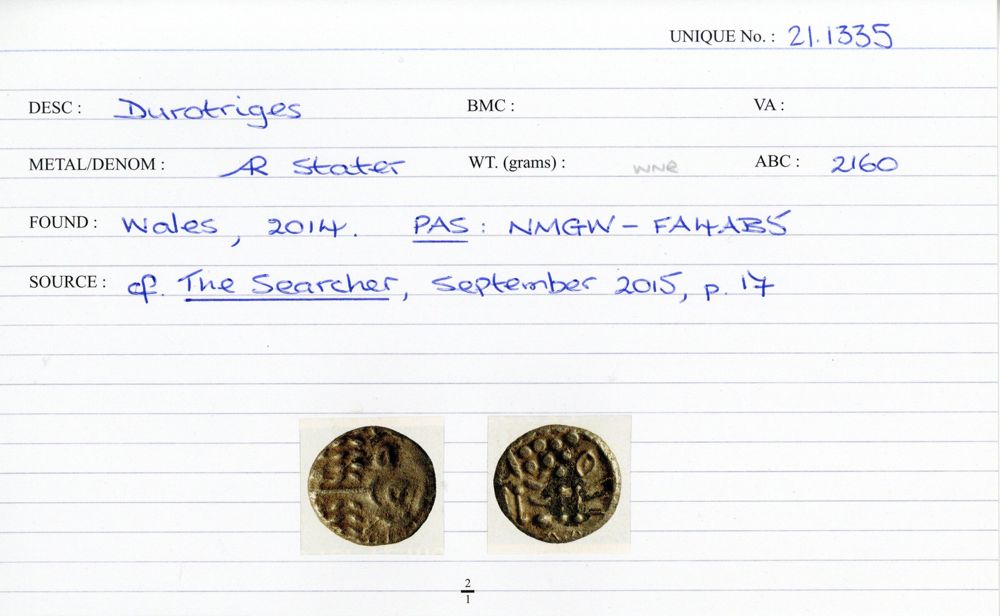 UNIQUE No. : 21.1335
DESC : Durotriges BMC : VA :
METAL/DENOM : AR Stater WT. (grams) : wnr ABC : 2160
FOUND : Wales, 2014. PAS : NMGW - FA4AB5
SOURCE : cf. The Searcher, September 2015, p. 17
2
1